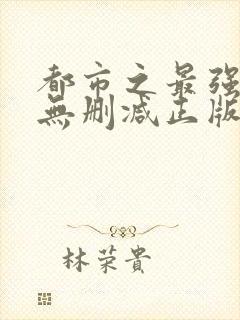 都市之最强
無删减正版
林荣貴